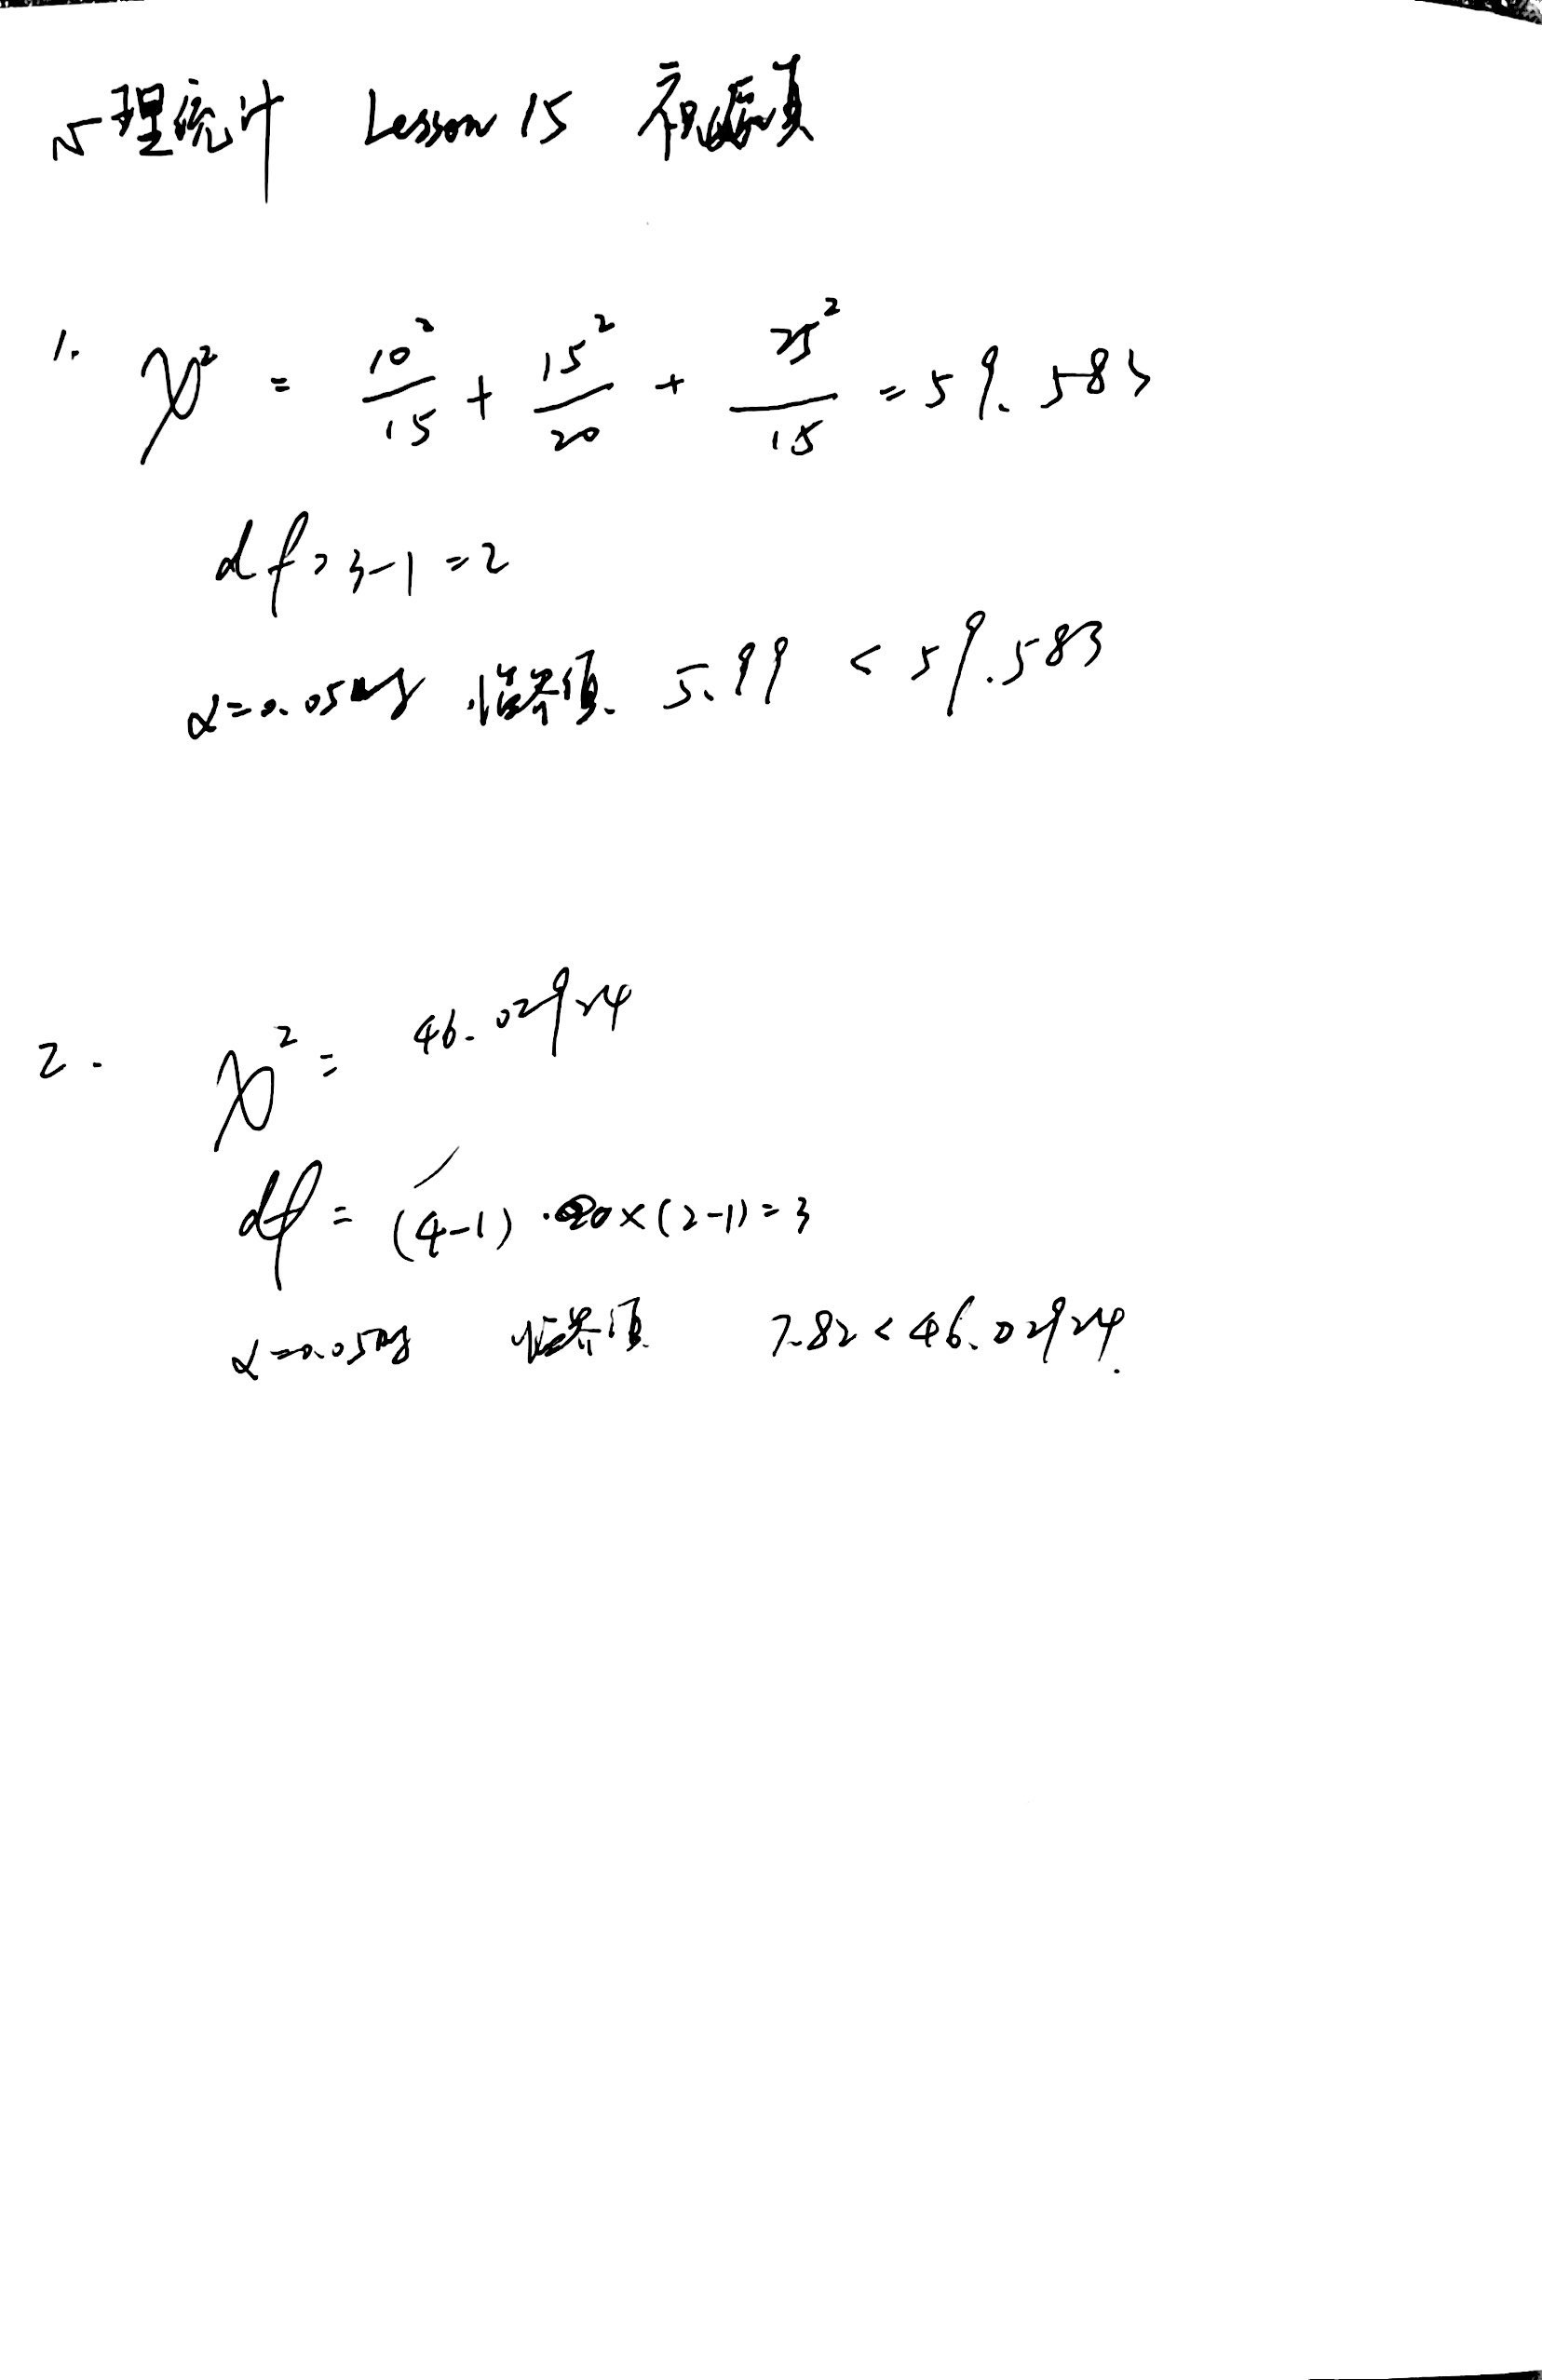 心理统计 Lesson 15
1. χ² = 10²/15 + 15²/20 + 25²/15 = 59.583
df = 3-1 = 2
α=0.05时 临界值 5.99 < 59.583
2. χ² = 46.02924
df = (4-1) ×(2-1) = 3
α=0.05时 临界值 7.82 < 46.02924.